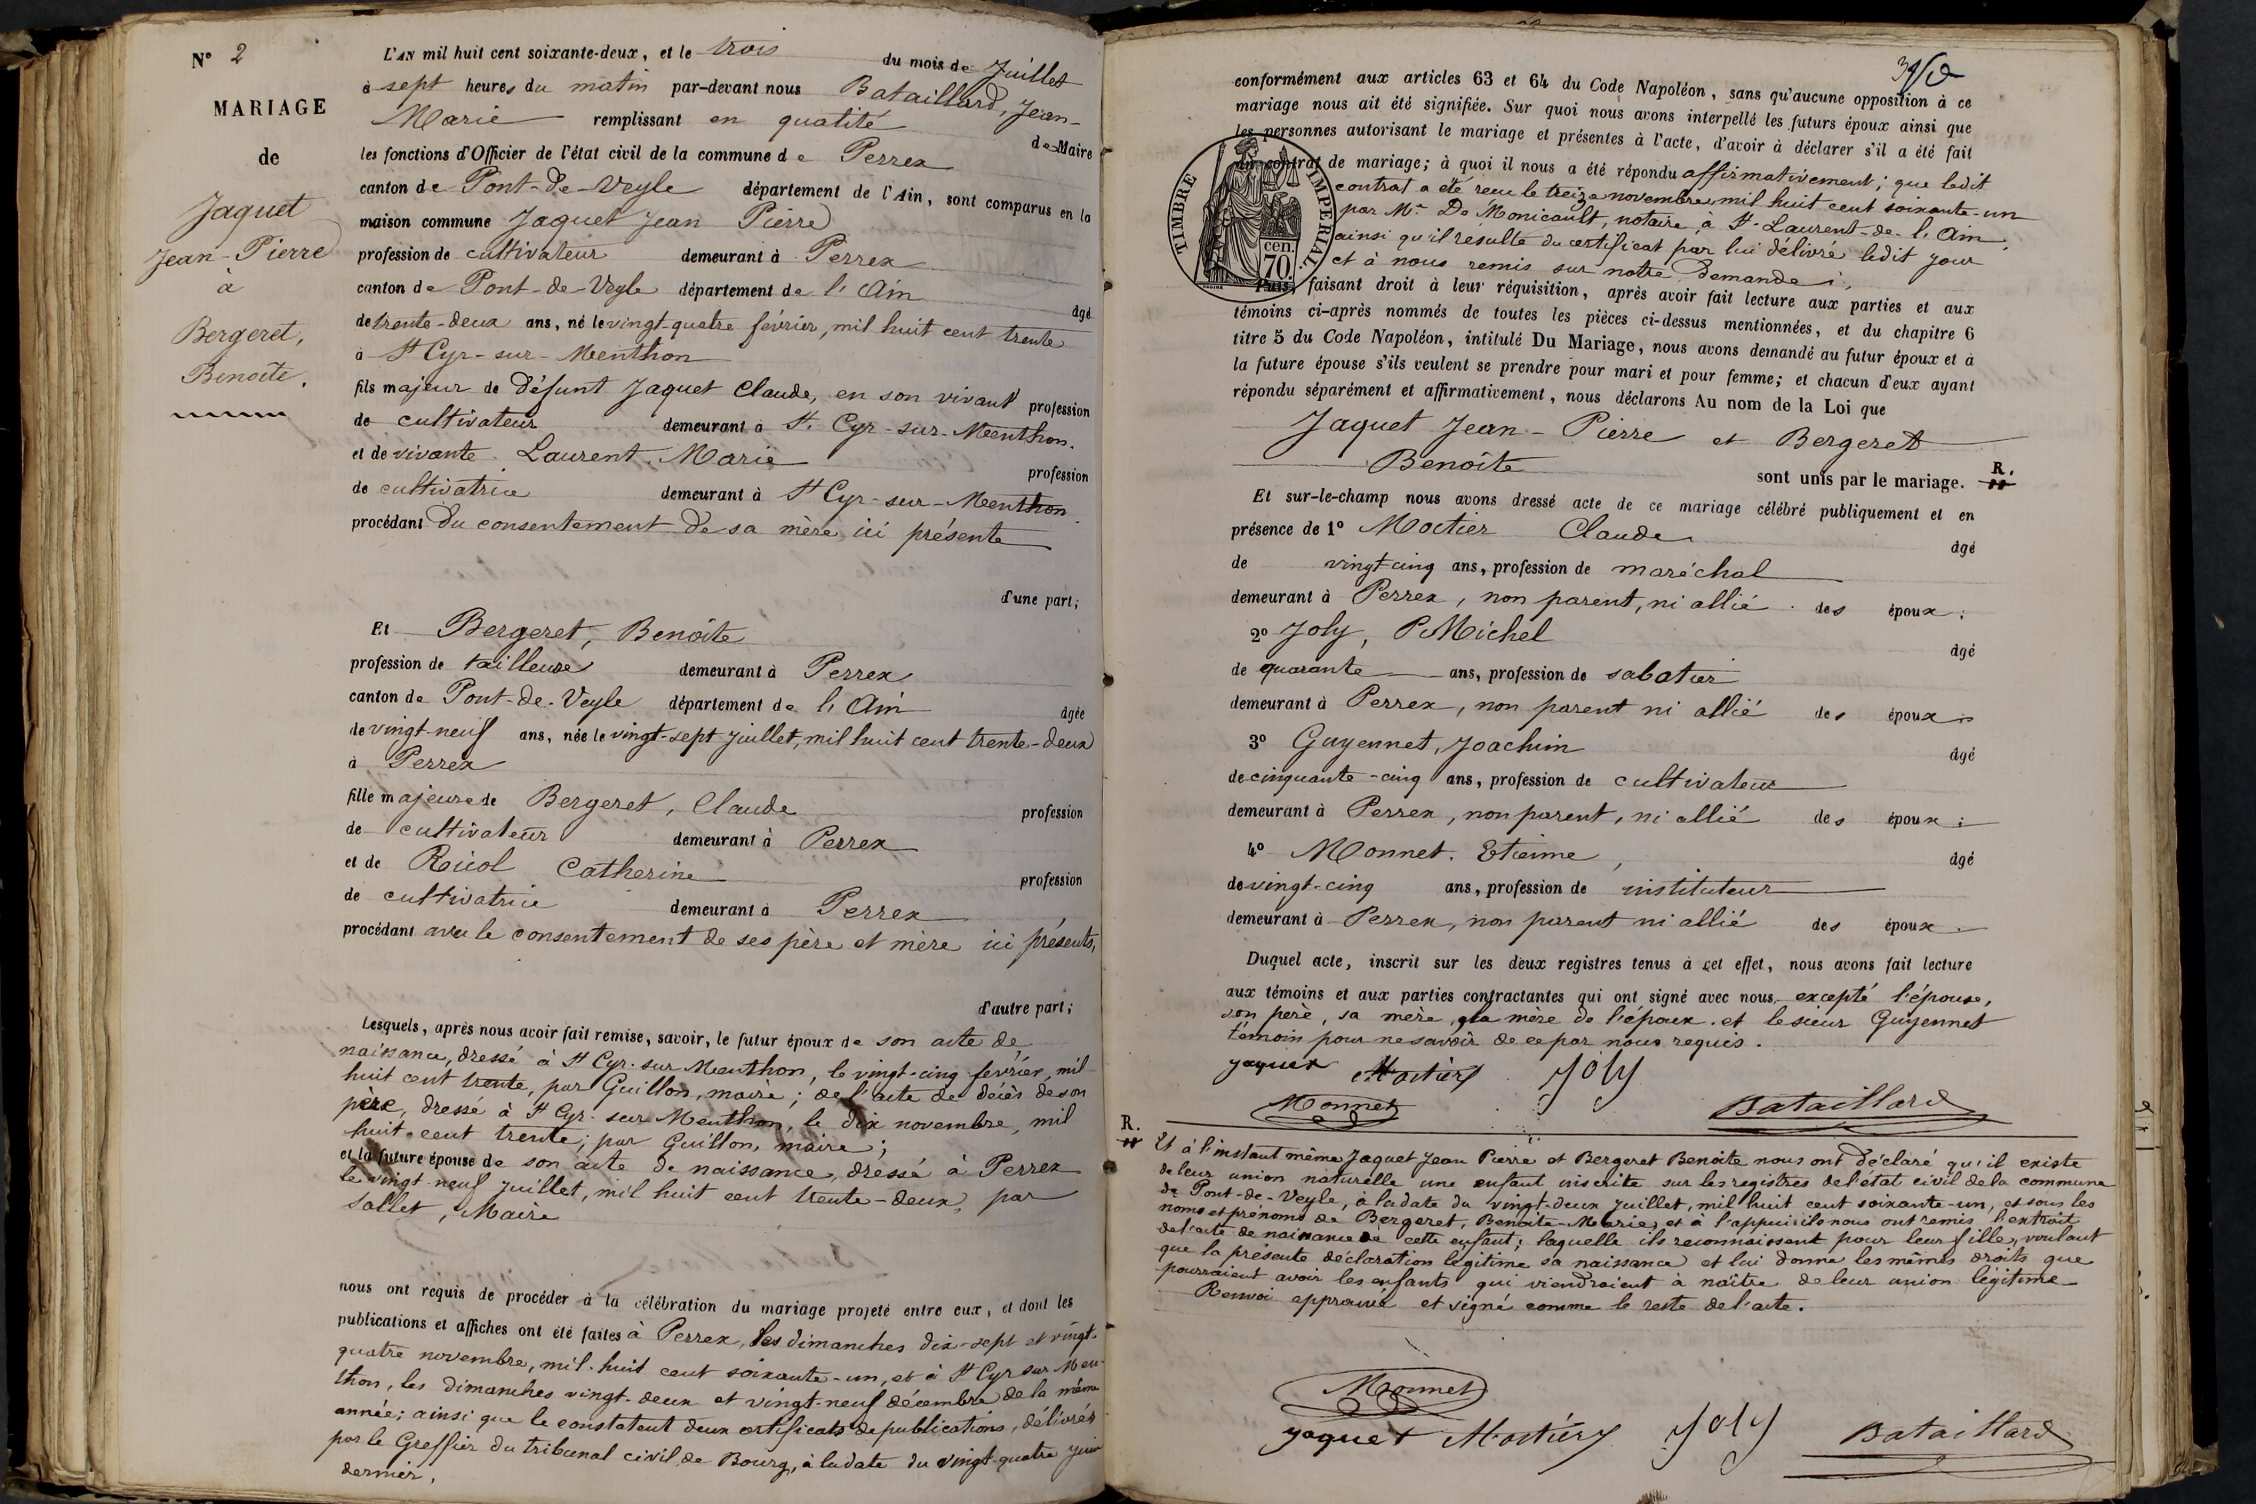 N° 2
MARIAGE
de
Jaquet
Jean-Pierre
à
Bergeret,
Benoîte.
L'AN mil huit cent soixante-deux, et le trois du mois de Juillet
à sept heures du matin par-devant nous Bataillard, Jean-
Marie remplissant en qualité de Maire
les fonctions d'Officier de l'état civil de la commune de Perrex
canton de Pont-de-Veyle département de l'Ain, sont comparus en la
maison commune Jaquet Jean Pierre
profession de cultivateur demeurant à Perrex
canton de Pont-de-Veyle département de l'Ain âgé
de trente-deux ans, né le vingt-quatre février, mil huit cent trente
à St Cyr-sur-Menthon
fils majeur de défunt Jaquet Claude, en son vivant profession
de cultivateur demeurant à St. Cyr-sur-Menthon.
et de vivante Laurent, Marie profession
de cultivatrice demeurant à St Cyr-sur-Menthon.
procédant du consentement de sa mère ici présente
d'une part;
Et Bergeret, Benoîte
profession de tailleuse demeurant à Perrex
canton de Pont-de-Veyle département de l'Ain âgée
de vingt-neuf ans, née le vingt-sept juillet, mil huit cent trente-deux
à Perrex
fille majeure de Bergeret, Claude profession
de cultivateur demeurant à Perrex
et de Ricol Catherine profession
de cultivatrice demeurant à Perrex
procédant avec le consentement de ses père et mère ici présents,
d'autre part;
Lesquels, après nous avoir fait remise, savoir, le futur époux de son acte de
naissance, dressé à St Cyr-sur-Menthon, le vingt-cinq février, mil
huit cent trente, par Guillon, maire; de l'acte de décès de son
père, dressé à St Cyr-sur Menthon, le dix novembre, mil
huit-cent trente; par Guillon, maire;
et la future épouse de son acte de naissance, dressé à Perrex
le vingt-neuf juillet, mil huit cent trente-deux, par
Sallet, Maire
nous ont requis de procéder à la célébration du mariage projeté entre eux, et dont les
publications et affiches ont été faites à Perrex, les dimanches dix-sept et vingt-
quatre novembre, mil-huit cent soixante-un, et à St Cyr sur Men-
thon, les dimanches vingt-deux et vingt-neuf décembre de la même
année; ainsi que le constatent deux certificats de publications, délivrés
par le Greffier du tribunal civil de Bourg, à la date du vingt-quatre juin
dernier,
conformément aux articles 63 et 64 du Code Napoléon, sans qu'aucune opposition à ce
mariage nous ait été signifiée. Sur quoi nous avons interpellé les futurs époux ainsi que
les personnes autorisant le mariage et présentes à l'acte, d'avoir à déclarer s'il a été fait
un contrat de mariage; à quoi il nous a été répondu affirmativement; que ledit
contrat a été reçu le treize novembre, mil huit cent soixante-un
par Mr. De Monicault, notaire, à St-Laurent-de-l'Ain,
ainsi qu'il résulte du certificat par lui délivré ledit jour
et à nous remis sur notre demande;
TIMBRE IMPÉRIAL
70 cen.
Puis, faisant droit à leur réquisition, après avoir fait lecture aux parties et aux
témoins ci-après nommés de toutes les pièces ci-dessus mentionnées, et du chapitre 6
titre 5 du Code Napoléon, intitulé Du Mariage, nous avons demandé au futur époux et à
la future épouse s'ils veulent se prendre pour mari et pour femme; et chacun d'eux ayant
répondu séparément et affirmativement, nous déclarons Au nom de la Loi que
Jaquet Jean-Pierre et Bergeret
Benoîte sont unis par le mariage. R.
Et sur-le-champ nous avons dressé acte de ce mariage célébré publiquement et en
présence de 1° Moctier Claude âgé
de vingt-cinq ans, profession de maréchal
demeurant à Perrex, non parent, ni allié des époux;
2° Joly, P. Michel âgé
de quarante ans, profession de sabatier
demeurant à Perrex, non parent ni allié des époux;
3° Guyennet, Joachim âgé
de cinquante-cinq ans, profession de cultivateur
demeurant à Perrex, non parent, ni allié des époux;
4° Monnet. Etienne, âgé
de vingt-cinq ans, profession de instituteur
demeurant à Perrex, non parent ni allié des époux.
Duquel acte, inscrit sur les deux registres tenus à cet effet, nous avons fait lecture
aux témoins et aux parties contractantes qui ont signé avec nous, excepté l'épouse,
son père, sa mère, la mère de l'époux et le sieur Guyennet
témoin pour ne savoir de ce par nous requis.
Jaquet Moctier Joly
Monnet Bataillard
R.
Et à l'instant même Jaquet Jean Pierre et Bergeret Benoîte nous ont déclaré qu'il existe
de leur union naturelle une enfant inscrite sur les registres de l'état civil de la commune
de Pont-de-Veyle, à la date du vingt-deux juillet, mil huit cent soixante-un, et sous les
noms et prénoms de Bergeret, Benoîte-Marie, et à l'appui ils nous ont remis l'extrait
de l'acte de naissance de cette enfant; laquelle ils reconnaissent pour leur fille, voulant
que la présente déclaration légitime sa naissance et lui donne les mêmes droits que
pourraient avoir les enfants qui viendraient à naître de leur union légitime
Renvoi approuvé et signé comme le reste de l'acte.
Monnet
Jaquet Moctier Joly Bataillard